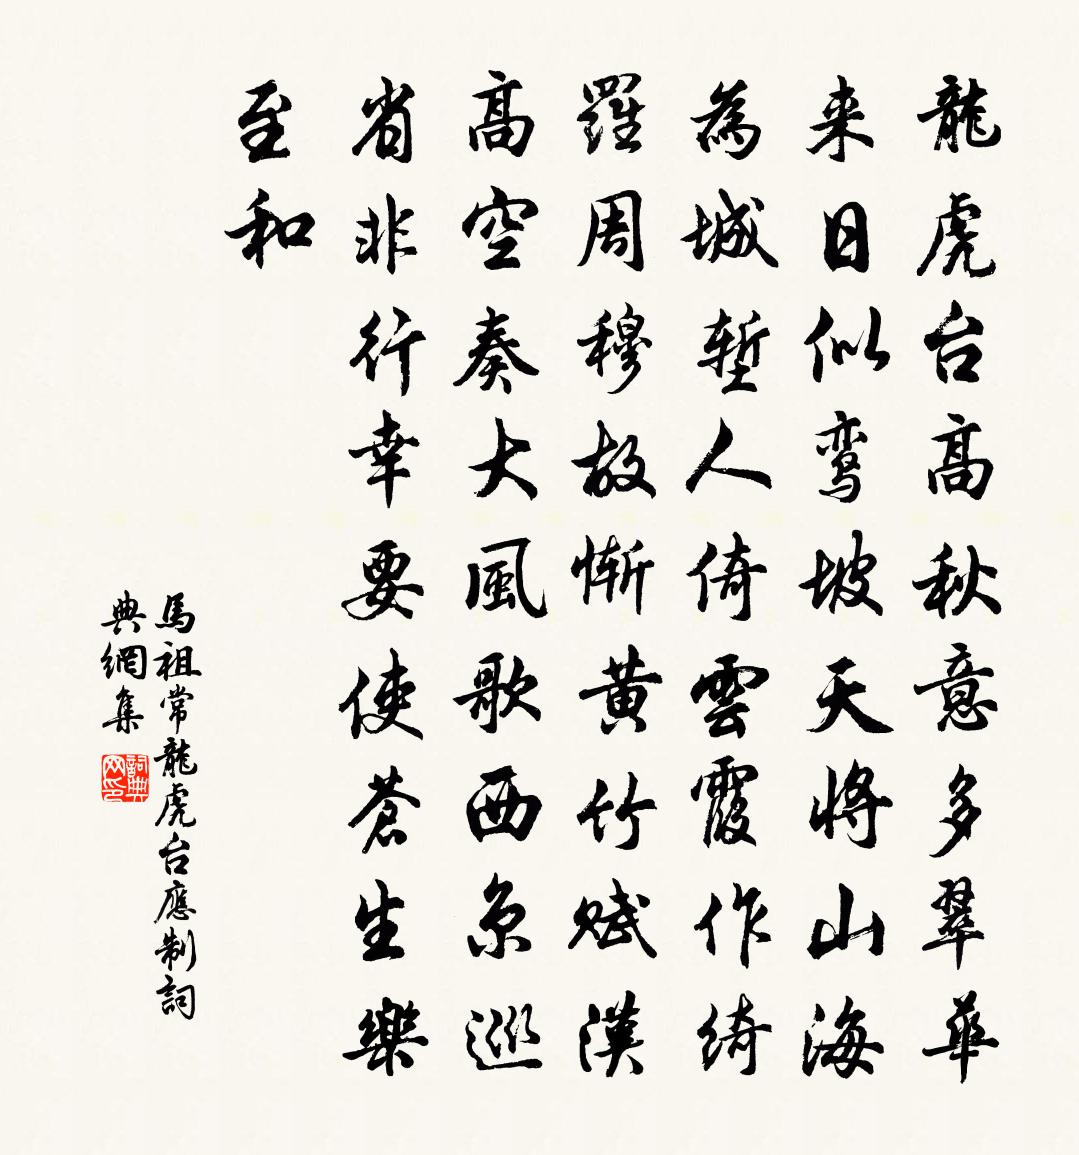 龍虎台高秋意多翠華
来日似鸾坡天将山海
為城堑人倚雲霞作綺
羅周穆故惭黄竹賦漢
高空奏大風歌西京巡
省非行幸要使蒼生樂
至和
馬祖常龍虎台應制詞
典網集
詞典
网印